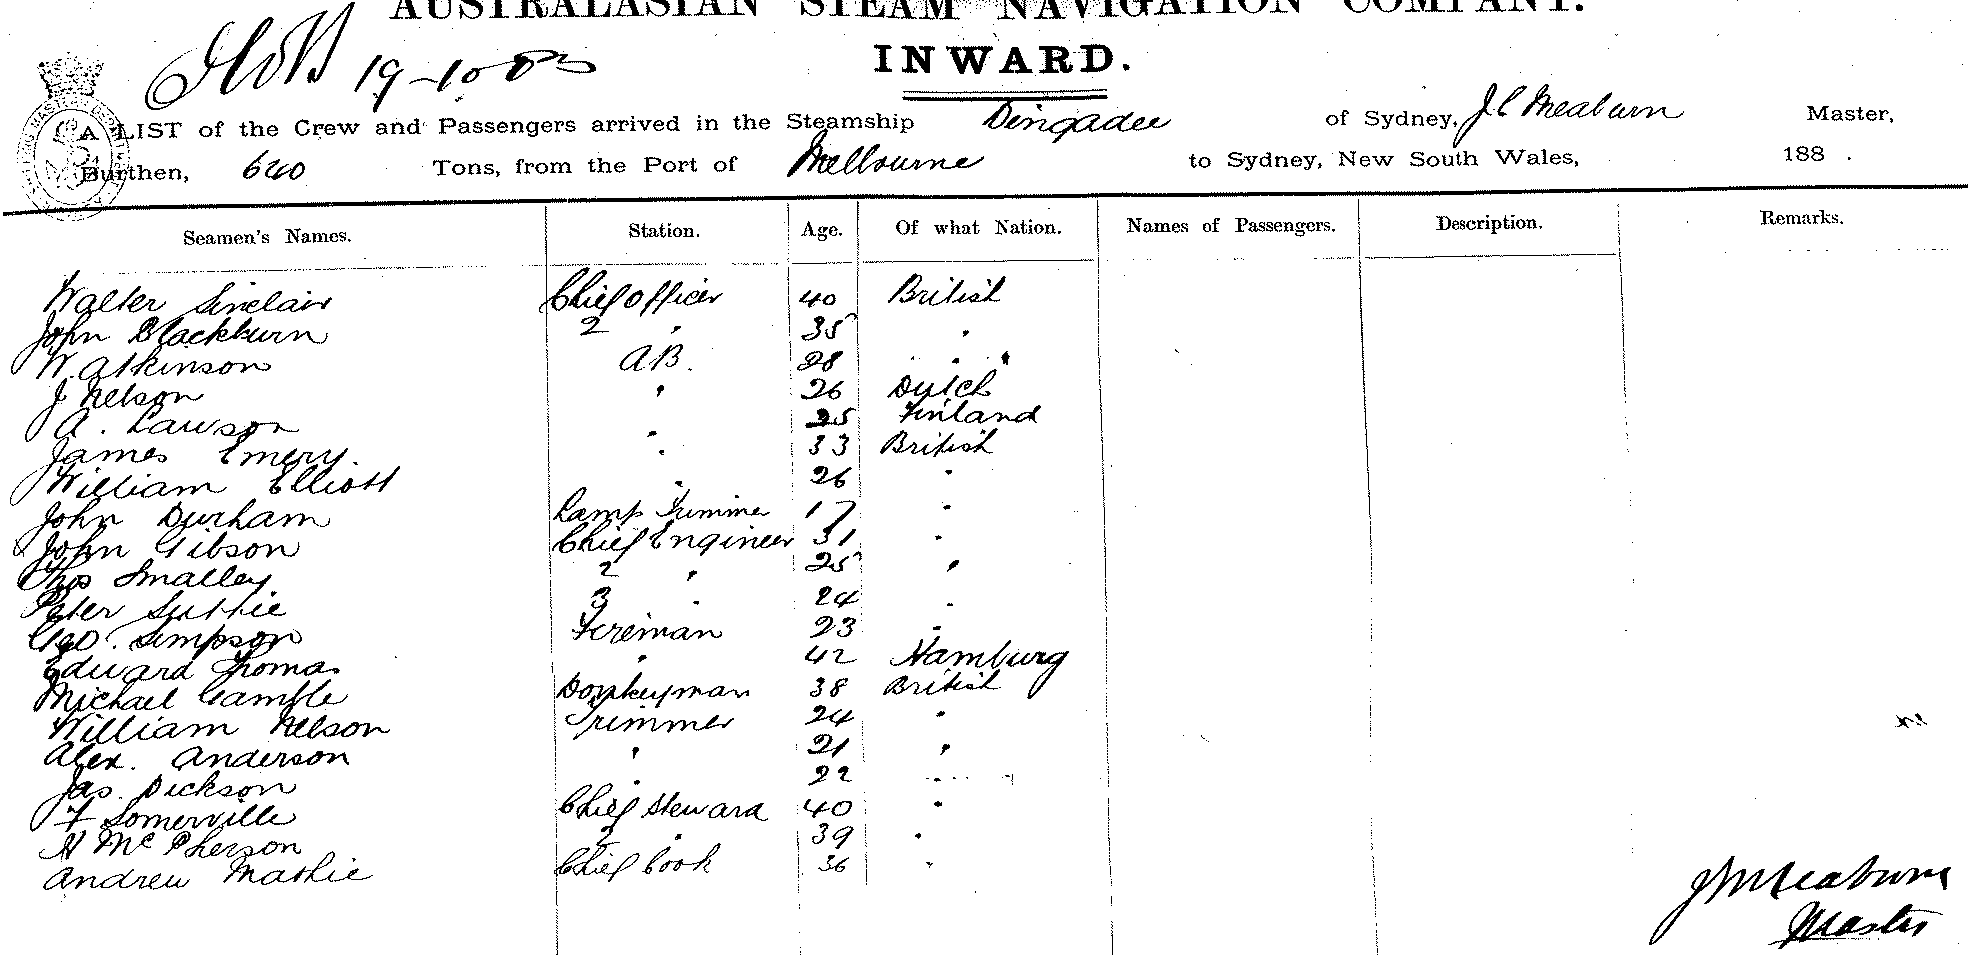 AUSTRALASIAN STEAM NAVIGATION COMPANY.
INWARD.
19-10-83
A LIST of the Crew and Passengers arrived in the Steamship Dingadee of Sydney, J C Meaburn Master,
Burthen, 640 Tons, from the Port of Melbourne to Sydney, New South Wales, 188 .
Seamen's Names. Station. Age. Of what Nation. Names of Passengers. Description. Remarks.
Walter Sinclair Chief Officer 40 British
John Blackburn 2 " 35 "
W. Atkinson AB. 28 "
J Nelson " 26 Dutch
A. Lawson " 25 Finland
James Emery. " 33 British
William Elliott " 26 "
John Durham Lamp Trimmer 17 "
John Gibson Chief Engineer 31 "
Thos Smalley 2 " 25 "
Peter Suttie 3 " 24 "
Geo. Simpson Fireman 23 "
Edward Thomas " 42 Hamburg
Michael Gamble Donkeyman 38 British
William Nelson Trimmer 24 "
Alex. Anderson " 21 "
Jas. Dickson " 22 "
F Somerville Chief Steward 40 "
H McPherson 2 " 39 "
Andrew Mathie Chief Cook 36 "
J C Meaburn
Master